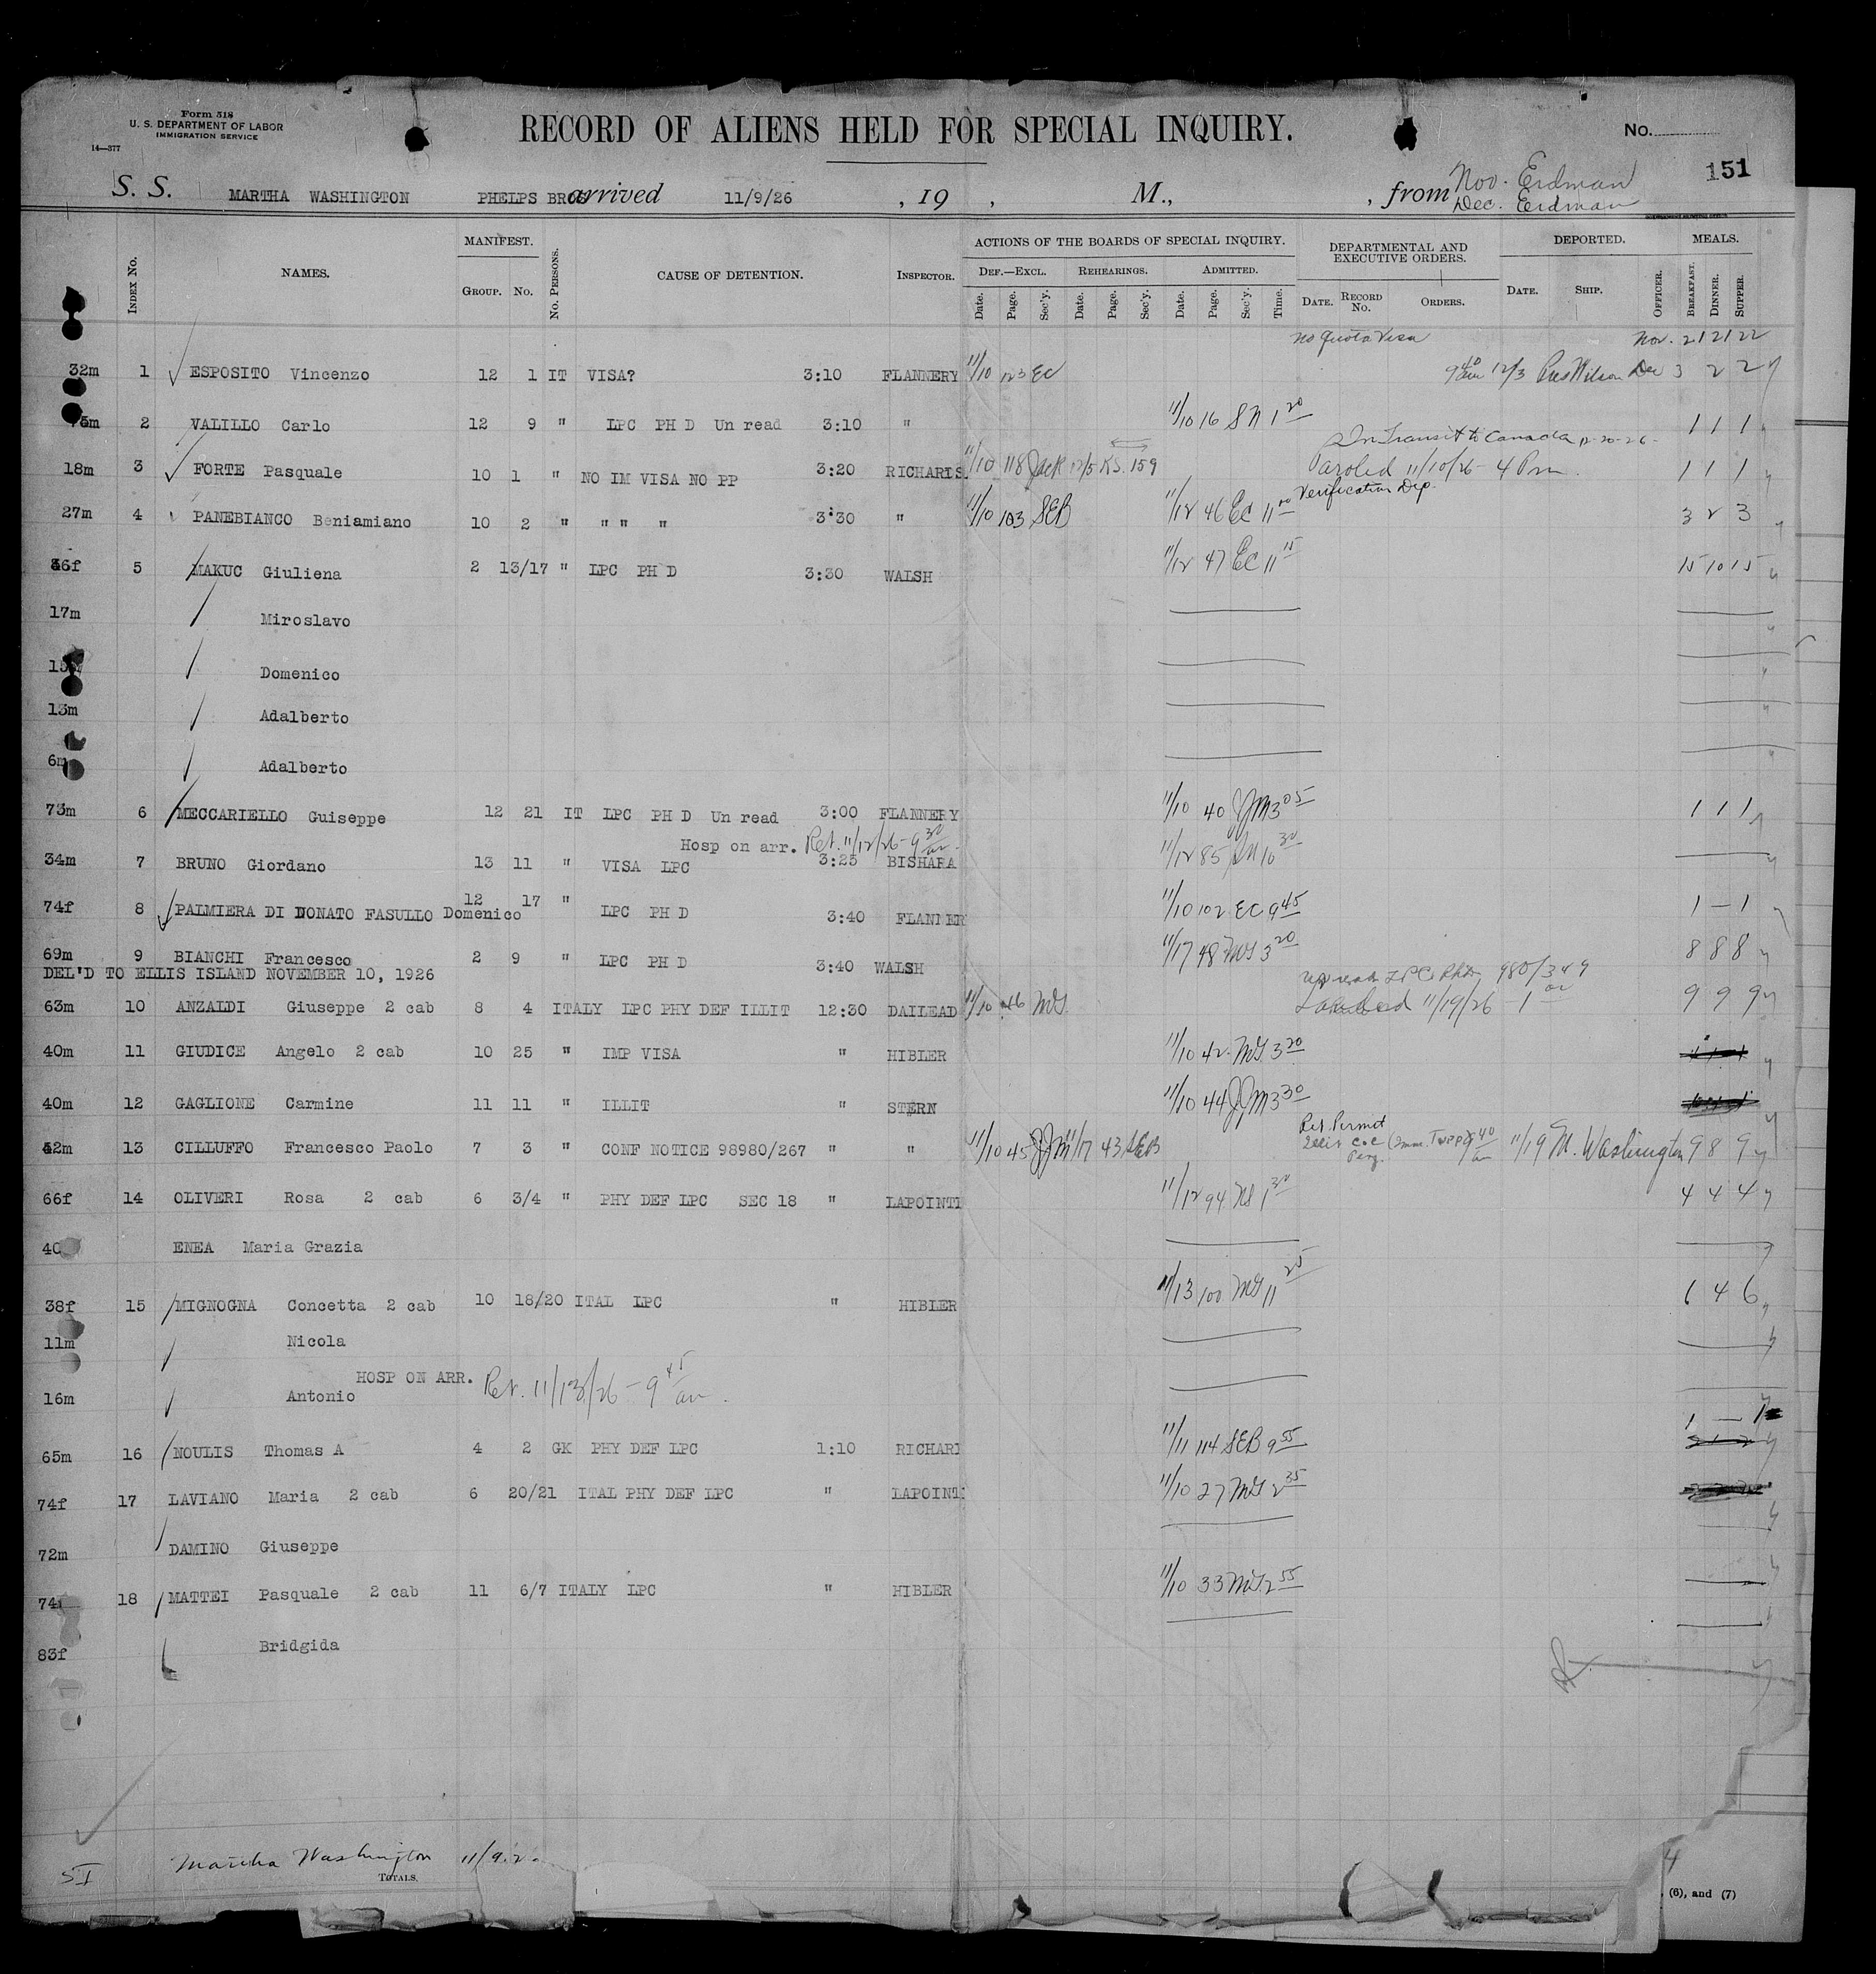 Form 518
U. S. DEPARTMENT OF LABOR
IMMIGRATION SERVICE
14—377
RECORD OF ALIENS HELD FOR SPECIAL INQUIRY.
No.
151
S. S. MARTHA WASHINGTON PHELPS BROS arrived 11/9/26 , 19 , M., , from Nov. Erdman
Dec. Erdman
INDEX No. NAMES. MANIFEST. GROUP. No. No. PERSONS. CAUSE OF DETENTION. INSPECTOR. ACTIONS OF THE BOARDS OF SPECIAL INQUIRY. DEF.—EXCL. REHEARINGS. ADMITTED. Date. Page. Sec'y. Date. Page. Sec'y. Date. Page. Sec'y. Time. DEPARTMENTAL AND EXECUTIVE ORDERS. DATE. RECORD No. ORDERS. DEPORTED. DATE. SHIP. OFFICER. MEALS. BREAKFAST. DINNER. SUPPER.
No Quota Visa Nov. 21 21 22
32m 1 ESPOSITO Vincenzo 12 1 IT VISA? 3:10 FLANNERY 11/10 123 EC 9 40 am 12/3 Pres Wilson Dec 3 2 2
5m 2 VALILLO Carlo 12 9 " LPC PH D Un read 3:10 " 11/10 16 SN 1 20 1 1 1
In Transit to Canada 12-20-26-
18m 3 FORTE Pasquale 10 1 " NO IM VISA NO PP 3:20 RICHARDS 11/10 118 12/5 KS. 159 Paroled 11/10/26 - 4 Pm 1 1 1
Verification Dep.
27m 4 PANEBIANCO Beniamiano 10 2 " " " " 3:30 " 11/10 103 SEB 11/12 46 EC 11 00 3 2 3
36f 5 MAKUC Giuliena 2 13/17 " LPC PH D 3:30 WALSH 11/12 47 EC 11 15 15 10 15
17m Miroslavo
15 Domenico
13m Adalberto
6m Adalberto
73m 6 MECCARIELLO Guiseppe 12 21 IT LPC PH D Un read 3:00 FLANNERY 11/10 40 JJM 3 05 1 1 1
Hosp on arr. Ret. 11/12/26 - 9 30 am
34m 7 BRUNO Giordano 13 11 " VISA LPC 3:25 BISHARA 11/12 85 10 30
74f 8 PALMIERA DI DONATO FASULLO Domenico 12 17 " LPC PH D 3:40 FLANNER 11/10 102 EC 9 45 1 — 1
69m 9 BIANCHI Francesco 2 9 " LPC PH D 3:40 WALSH 11/17 48 MG 3 20 8 8 8
DEL'D TO ELLIS ISLAND NOVEMBER 10, 1926
980/349
63m 10 ANZALDI Giuseppe 2 cab 8 4 ITALY LPC PHY DEF ILLIT 12:30 DAILEAD 11/10 46 MG. Landed 11/19/26 - 1 9 9 9
40m 11 GIUDICE Angelo 2 cab 10 25 " IMP VISA " HIBLER 11/10 42 MG 3 20
40m 12 GAGLIONE Carmine 11 11 " ILLIT " STERN 11/10 44 JJM 3 30
Ret. Permit
42m 13 CILLUFFO Francesco Paolo 7 3 " CONF NOTICE 98980/267 " " 11/10 45 JJM 11/17 43 SEB 11/19 M. Washington 9 8 9
66f 14 OLIVERI Rosa 2 cab 6 3/4 " PHY DEF LPC SEC 18 " LAPOINTE 11/12 94 KS 1 30 4 4 4
40 ENEA Maria Grazia
38f 15 MIGNOGNA Concetta 2 cab 10 18/20 ITAL LPC " HIBLER 11/13 100 MG 11 25 6 4 6
11m Nicola
HOSP ON ARR. Ret. 11/13/26 - 9 45 am.
16m Antonio
1 — 1
65m 16 NOULIS Thomas A 4 2 GK PHY DEF LPC 1:10 RICHAR 11/11 114 SEB 9 55
74f 17 LAVIANO Maria 2 cab 6 20/21 ITAL PHY DEF LPC " LAPOINT 11/10 27 MG 2 35
72m DAMINO Giuseppe
74 18 MATTEI Pasquale 2 cab 11 6/7 ITALY LPC " HIBLER 11/10 33 MG 2 55
83f Bridgida
SI Martha Washington 11/9/2
TOTALS.
4
, (6), and (7)